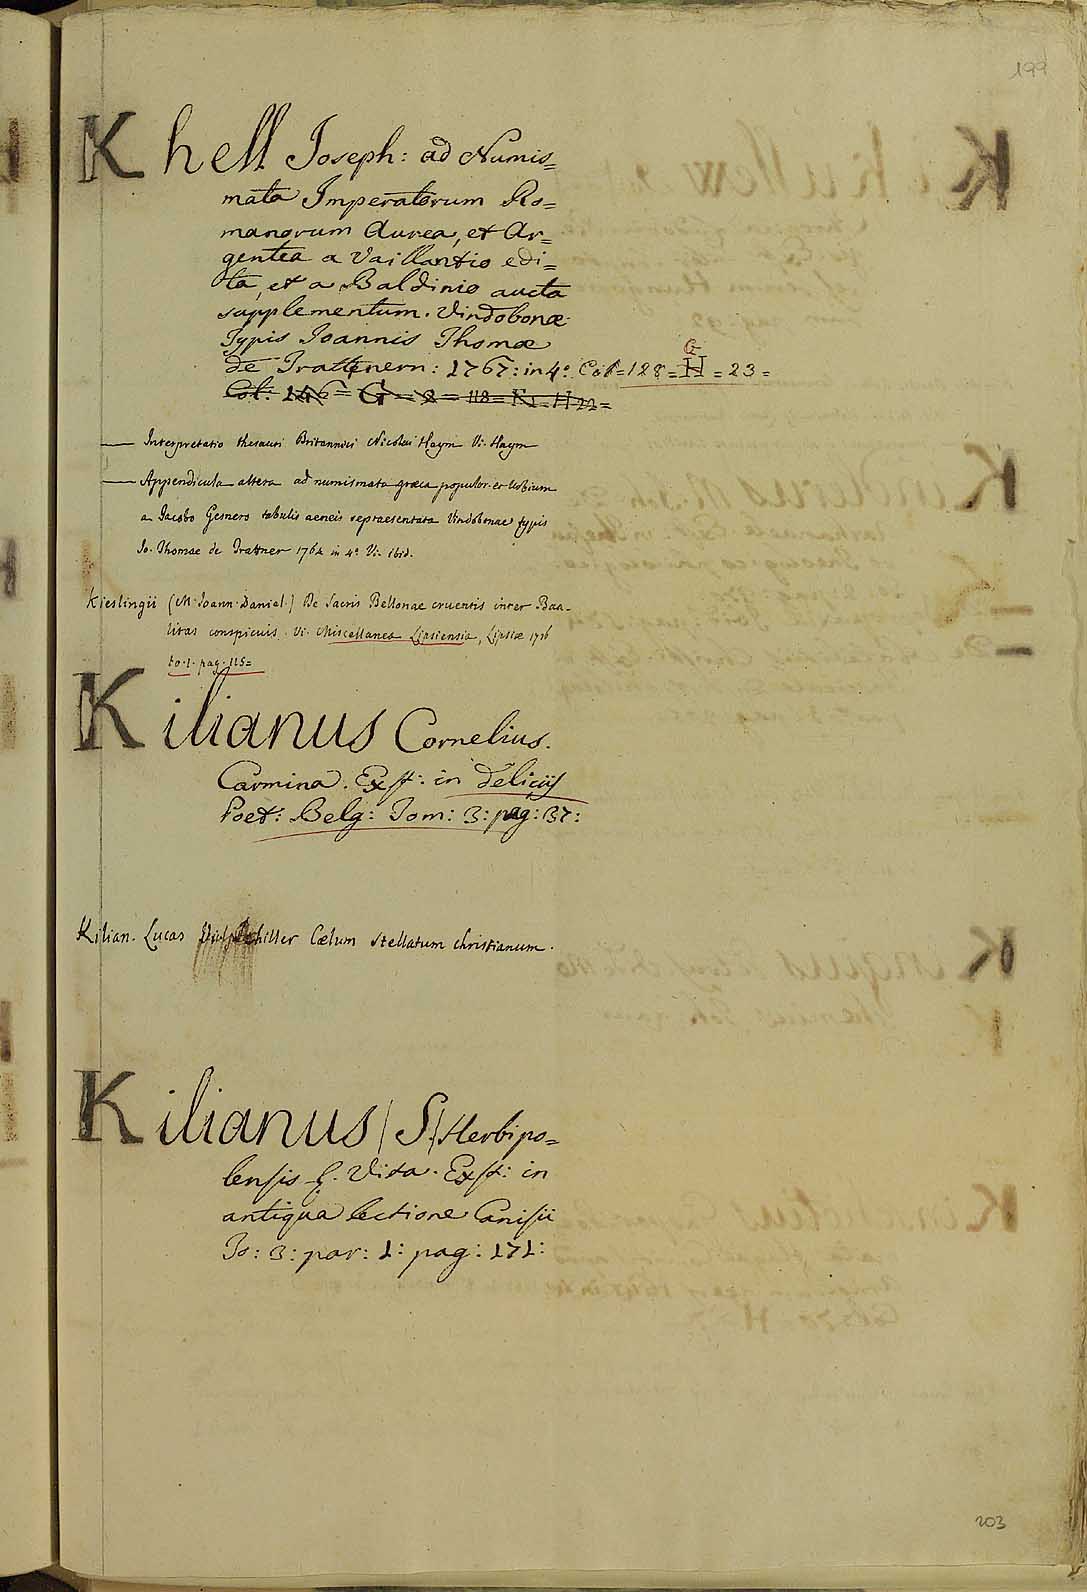 199
Khell Joseph: ad Numis=
mata Imperatorum Ro=
manorum Aurea, et Ar=
gentea a Vaillantio edi=
ta, et a Baldinio aucta
supplementum. Vindobonæ
Typis Joannis Thomæ
de Trattenern: 1767: in 4º Col=128=H=23=
G
Col: 146=G=
— Interpretatio thesauri Britannici Nicolai Haym Vi. Haym
— Appendicula altera ad numismata græca populor. et Urbium
a Jacobo Gesnero tabulis aeneis repraesentata Vindobonae typis
Jo. Thomae de Trattner 1764 in 4º Vi. ibid.
Kieslingii (M. Joann. Daniel.) De Sacris Bellonae cruentis inter Baa-
litas conspicuis. Vi. Miscellanea Lipsiensia, Lipsiæ 1716
to. 1. pag. 115=
Kilianus Cornelius.
Carmina. Exst: in Deliciis
Poet: Belg: Tom: 3: pag: 37:
Kilian. Lucas Schiller Cœlum stellatum christianum.
Kilianus (S.) Herbipo=
lensis E. Vita. Exst: in
antiqua lectione Canisii
To: 3: par: 1: pag: 171:
203